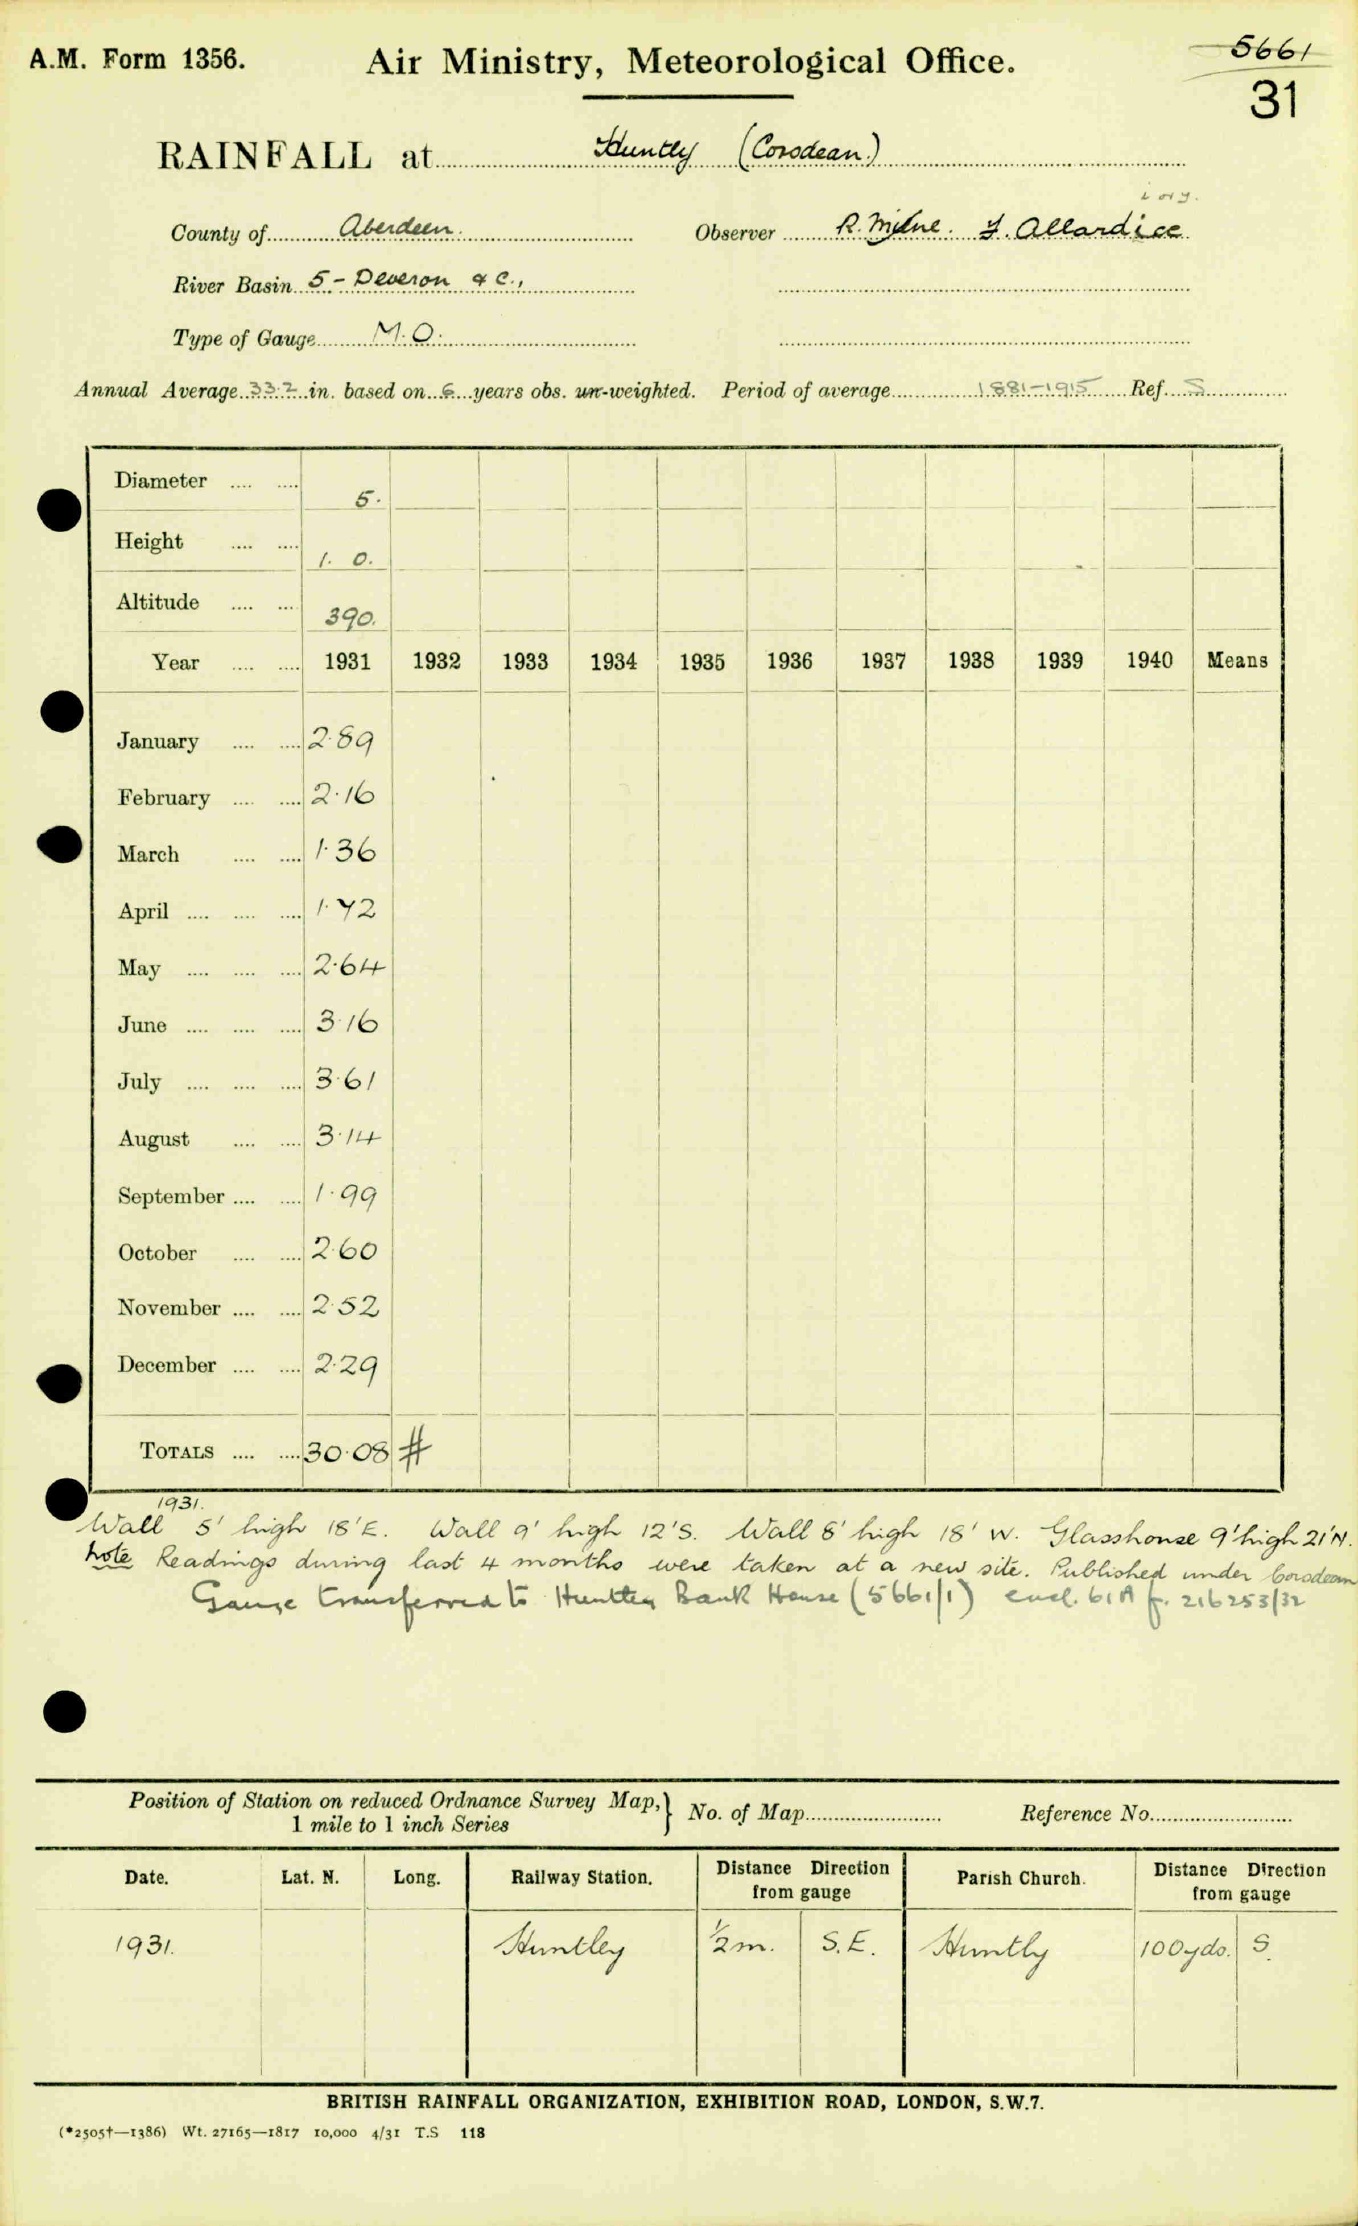 A.M. Form 1356.
Air Ministry, Meteorological Office.
5661
31
RAINFALL at Huntly (Corsdean)
i or y.
County of Aberdeen. Observer R. Milne. Y. Allardice
River Basin 5 - Deveron & C.,
Type of Gauge M.O.
Annual Average 33.2 in. based on 6 years obs. un-weighted. Period of average 1881-1915 Ref. S
Diameter .... .... 5.
Height .... .... 1. 0.
Altitude .... .... 390.
Year .... .... 1931 1932 1933 1934 1935 1936 1937 1938 1939 1940 Means
January .... .... 2.89
February .... .... 2.16
March .... .... 1.36
April .... .... .... 1.72
May .... .... .... 2.64
June .... .... .... 3.16
July .... .... .... 3.61
August .... .... 3.14
September .... .... 1.99
October .... .... 2.60
November .... .... 2.52
December .... .... 2.29
TOTALS .... .... 30.08 #
1931.
Wall 5' high 18'E. Wall 9' high 12'S. Wall 8' high 18' W. Glasshouse 9' high 21'N.
Note Readings during last 4 months were taken at a new site. Published under Corsdean
Gauge transferred to Huntley Bank House (5661/1) encl. 61A f. 216253/32
Position of Station on reduced Ordnance Survey Map, } No. of Map Reference No.
1 mile to 1 inch Series
Date. Lat. N. Long. Railway Station. Distance Direction from gauge Parish Church. Distance Direction from gauge
1931. Huntley 1/2 m. S.E. Huntly 100yds. S.
BRITISH RAINFALL ORGANIZATION, EXHIBITION ROAD, LONDON, S.W.7.
(*2505†—1386) Wt. 27165—1817 10,000 4/31 T.S 118